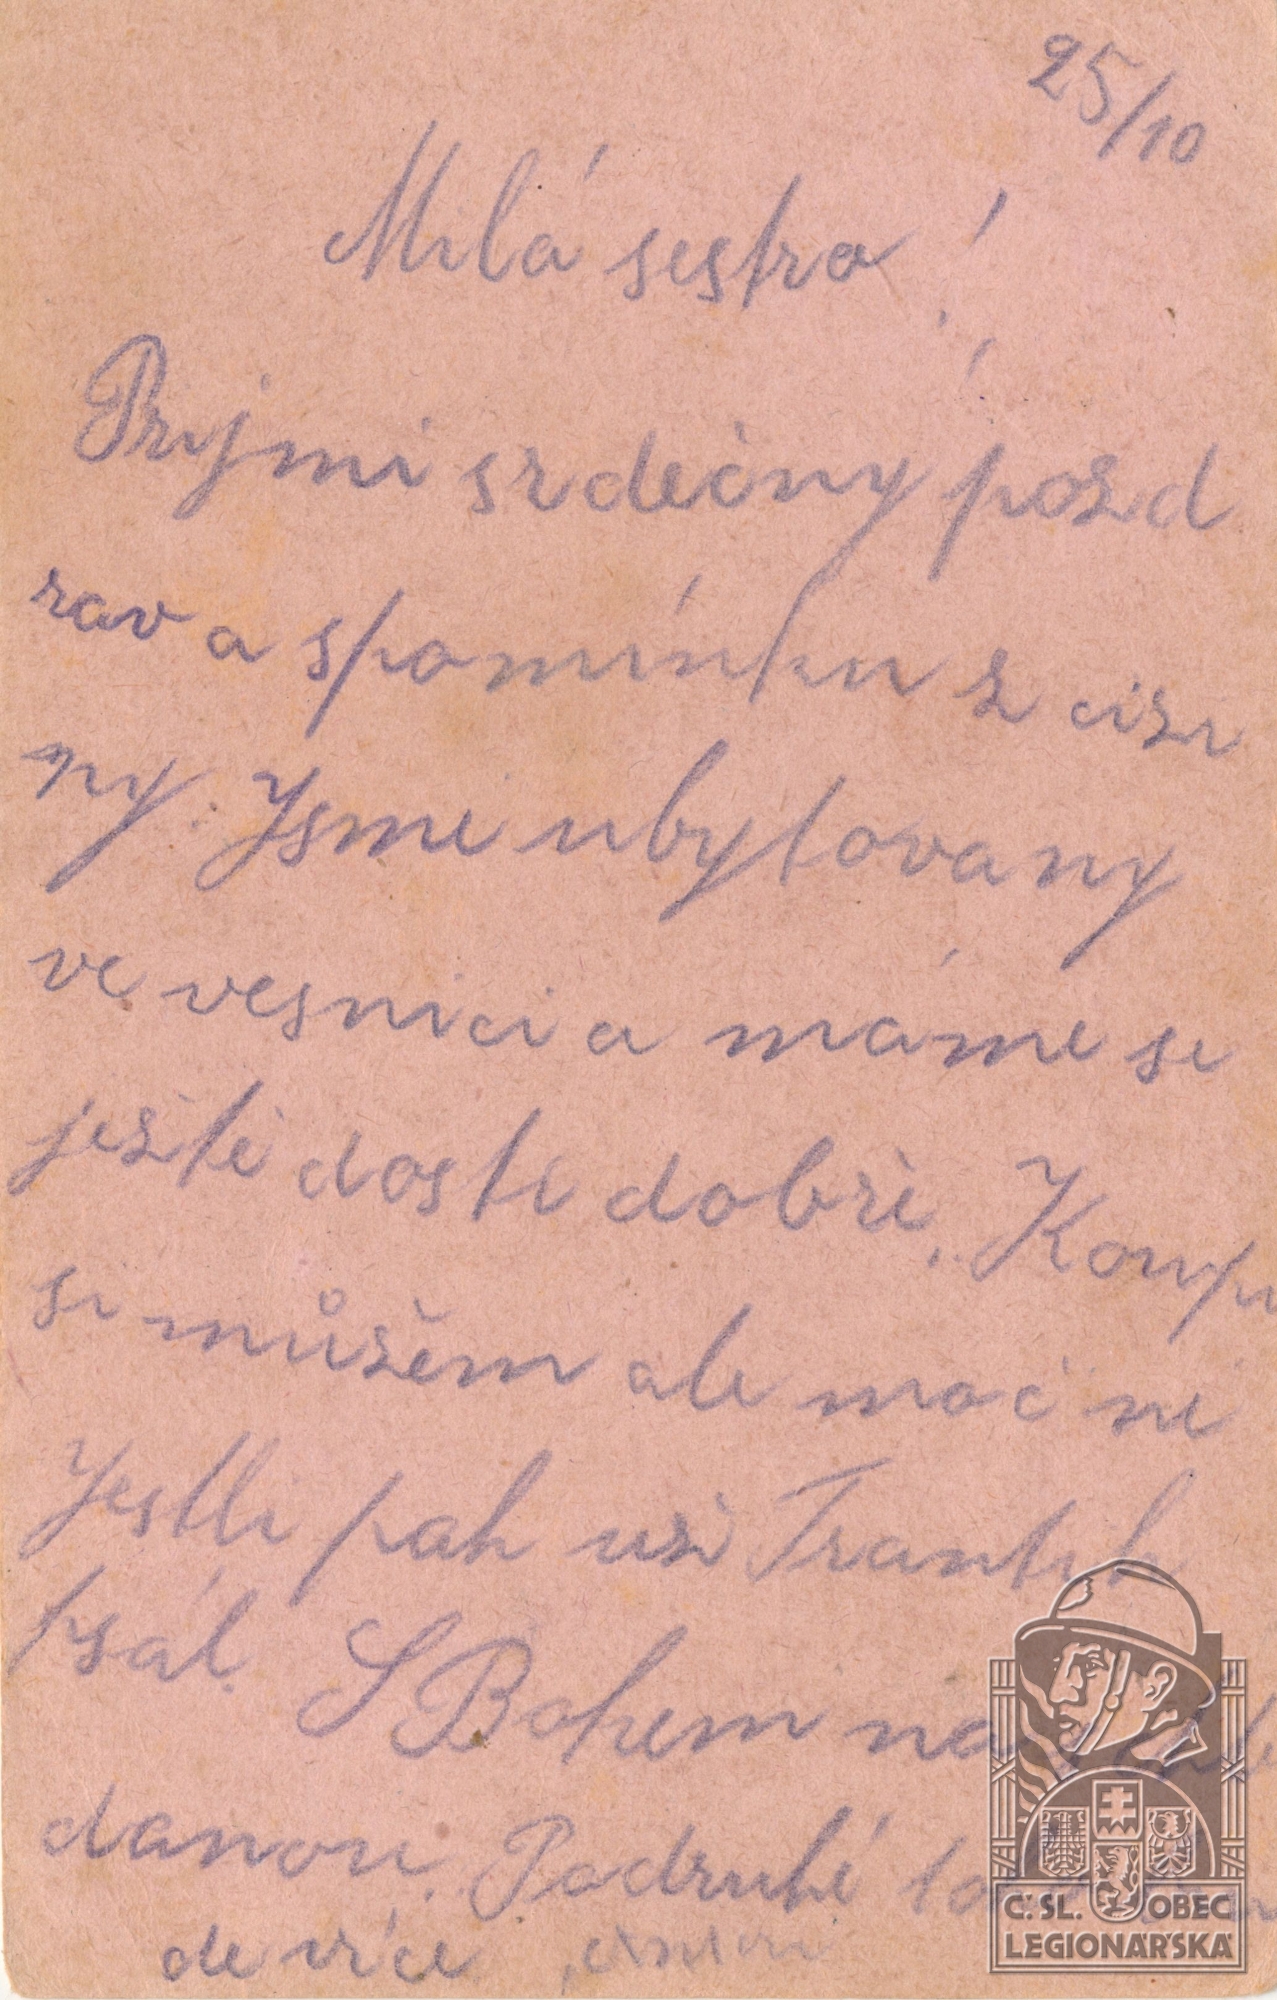 25/10
Milá sestro!
Prijmi srdečný pozd
rav a spomínku z cizi
ny. Jsme ubytovany
ve vesnici a máme se
ještě dosti dobře. Koupi
si můžěm ale moc ne
Jestli pak už Frantik
psál. S Bohem na
danou. Podruhé
de více
Č. SL. OBEC
LEGIONÁŘSKÁ